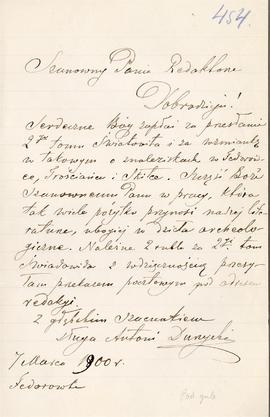 454.
Szanowny Panie Redaktorze
Dobrodzieju!
Serdeczne Bóg zapłać za przesłanie
2go tomu Światowita i za wzmiankę
w takowym o znaleziskach w Fedorów-
ce, Trościańcu i Skitce. Szczęść Boże
Szanownemu Panu w pracy, która
tak wiele pożytku przynosi naszej lite-
raturze, ubogiej w dzieła archeolo-
giczne. Należne 2 ruble za 2gi tom
Światowida z wdzięcznością przesy-
łam przekazem pocztowym pod adresem
redakcyi.
Z głębokim szacunkiem
sługa Antoni
7 Marca 1900 r.
Fedorówka